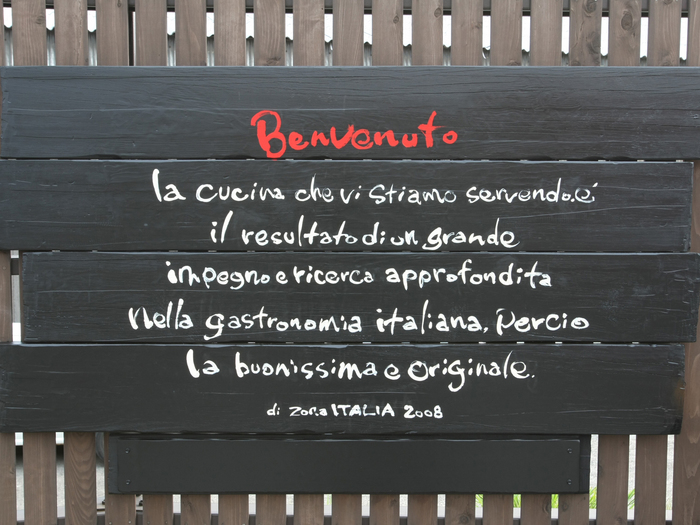 Benvenuto
la cucina che vi stiamo servendo.e'
il resultato di un grande
impegno e ricerca approfondita
nella gastronomia italiana. Percio
la buonissima e originale.
di zona ITALIA 2008